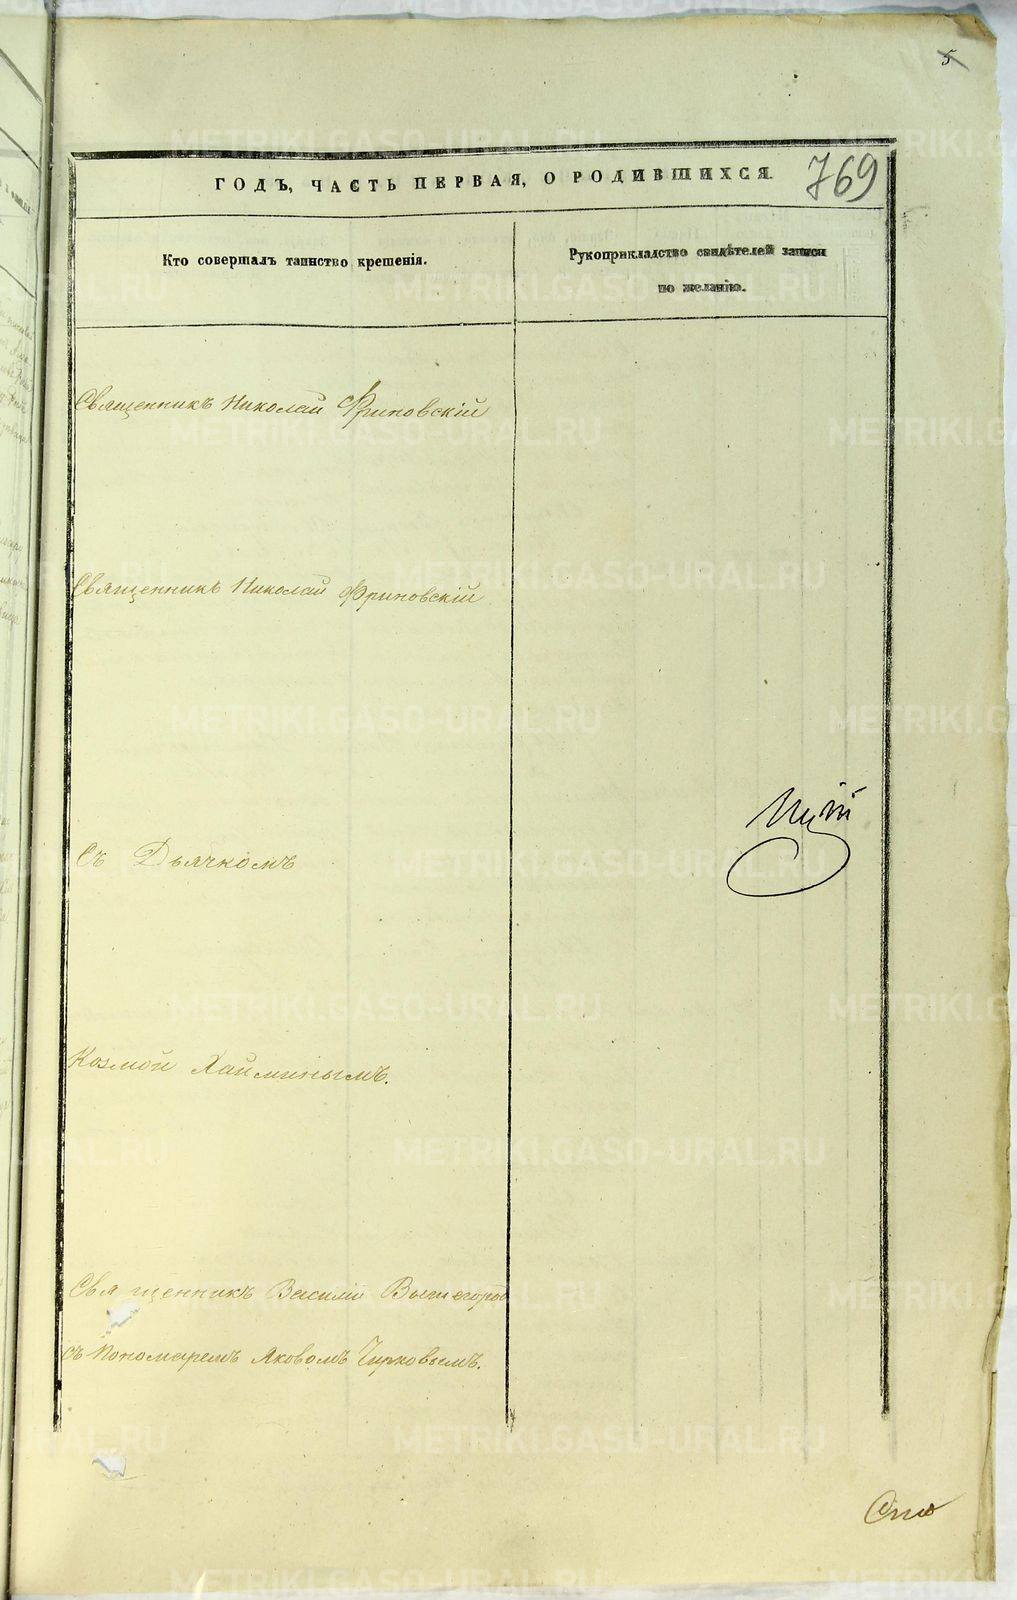 5
769
ГОДЪ, ЧАСТЬ ПЕРВАЯ, О РОДИВШИХСЯ.
Кто совершалъ таинство крещенія.
Рукоприкладство свидѣтелей записи
по желанію.
Священникъ Николай Фриновскій
Священникъ Николай Фриновскій
Съ Дьячкомъ
Козмой Хайминымъ.
Священникъ Василій Вышегород
съ Пономаремъ Яковомъ Чирковымъ.
METRIKI.GASO-URAL.RU